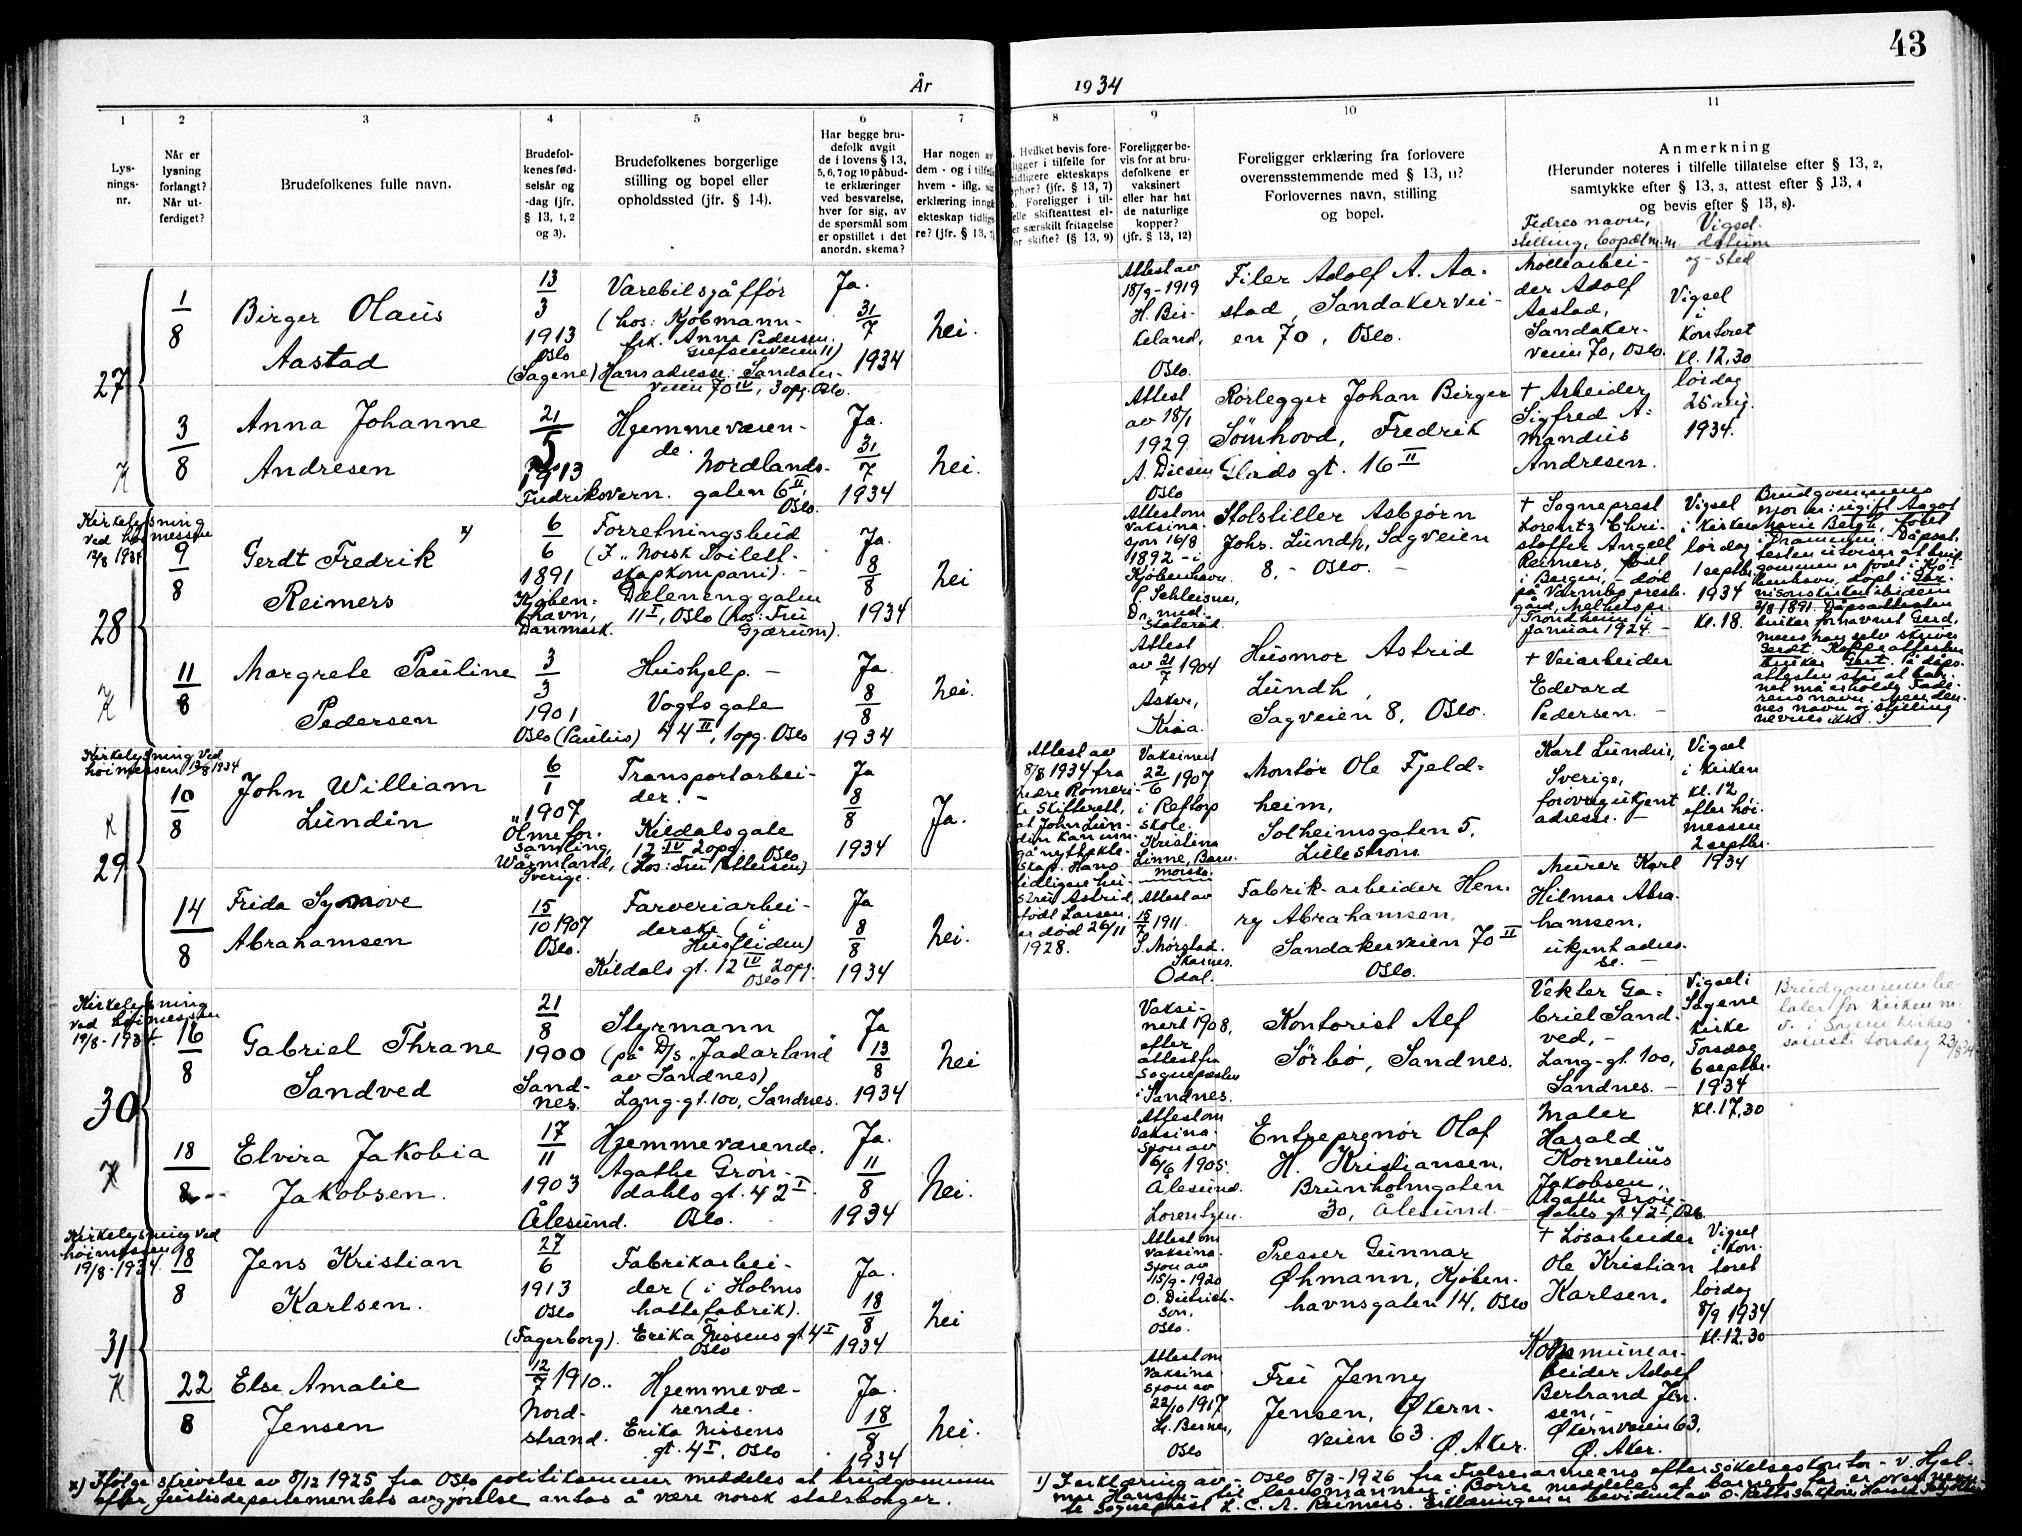 43
År 1934
1
2
3
4
5
6
7
8
9
10
11
Lys-
nings-
nr.
Når er
lysning
forlangt?
Når ut-
ferdiget?
Brudefolkenes fulle navn.
Brudefol-
kenes fød-
selsår og
-dag (jfr.
§ 13, 1, 2
og 3).
Brudefolkenes borgerlige
stilling og bopel eller
opholdssted (jfr. § 14).
Har begge bru-
defolk avgit
de i lovens § 13,
5, 6, 7 og 10 påbud-
te erklæringer
ved besvarelse,
hver for sig, av
de spørsmål som
er opstillet i det
anordn. skema?
Har nogen av
dem - og i tilfelle
hvem - iflg.
erklæring inngå
ekteskap tidlige-
re? (jfr. § 13,
Hvilket bevis fore-
ligger i tilfelle for
tidligere ekteskaps
ophør? (jfr. § 13, 7)
Foreligger i til-
felle skifteattest el-
ler særskilt fritagelse
for skifte? (§ 13, 9)
Foreligger be-
vis for at bru-
defolkene er
vaksinert
eller har hat
de naturlige
kopper?
(jfr. § 13, 12)
Foreligger erklæring fra forlovere
overensstemmende med § 13, 11?
Forlovernes navn, stilling
og bopel.
Anmerkning
(Herunder noteres i tilfelle tillatelse efter § 13, 2,
samtykke efter § 13, 3, attest efter § 13, 4
og bevis efter § 13, 8).
Fedres navn,
stilling, bopel m.m.
Vigsel-
datum
og -sted
27
K
1/8
Birger Olaus
Aastad
13/3
1913
Oslo
(Sagene)
Varebilsjåffør
(hos: Kjøbmann-
frk. Anna Pedersen,
Grefsenveien 11)
Hans adresse: Sandaker-
veien 70 IV, 3 opg. Oslo.
Ja.
31/7
1934
Nei.
Attest av
18/9-1919
H. Bir-
keland,
Oslo.
Filer Adolf A. Aa-
stad, Sandakervei-
en 70, Oslo.
Møllearbei-
der Adolf
Aastad,
Sandaker-
veien 70, Oslo.
Vigsel
i
Kontoret
kl. 12,30
lørdag
25 aug.
1934.
3/8
Anna Johanne
Andresen
21/5
1913
Fredriksvern.
Hjemmeværen-
de.
Nordlands-
gaten 6 II,
Oslo.
Ja.
31/7
1934
Nei.
Attest
av 18/1
1929
A. Diesen
Oslo
Rørlegger Johan Birger
Sömhovd, Fredrik
Glads gt. 16 II
† Arbeider
Sigfred A-
mandus
Andresen.
Kirkelysning
ved høimessen
12/8 1934
28
K
9/8
Gerdt Fredrik x)
Reimers
6/6
1891
Kjøben-
havn,
Danmark.
Forretningsbud
(I „Norsk Toilett-
skapkompani). -
Dælenenggaten
11 I, Oslo (hos: Fru
Gjærum).
Ja.
8/8
1934
Nei
Attest om
vaksina-
sjon 16/8
1892 - i
Kjøbenhavn.
Dr. med.
Stolstiller Asbjørn
Johs. Lundh, Sagveien
8, - Oslo. -
† Sogneprest
Lorentz Chri-
stoffer Angell
Reimers, født
i Bergen, - død
gård,
Trondheim i
januar 1924. -
Vigsel
i kirken
lørdag
1 septbr.
1934
kl. 18.
Brudgommens
mor er: ugift Aagot
Marie Bergh, født
i Drammen. - Dåpsat-
testen utviser at brud-
gommen er født i Kjø-
benhavn, døpt i Gar-
nisonskirken ibidem
2/8 1891. Dåpsattesten
bruker fornavnet Gerd,
mens han selv skriver
Gerdt. Koppeattesten
bruker Gert. På dåps-
attesten står at bar-
net må erholde Fade-
rens navn, men den-
nes navn og stilling
nevnes ikke. 1)
11/8
Margrete Pauline
Pedersen
3/3
1901
Oslo (Paulus)
Hushjelp. -
Vogts gate
44 II, 1 opg. Oslo
Ja.
8/8
1934
Nei.
Attest
av 21/7 1904
Asker,
Kraa.
Husmor Astrid
Lundh,
Sagveien 8, Oslo.
† Veiarbeider
Edvard
Pedersen. -
Kirkelysning ved
høimessen 12/8 1934
K
29
10/8
John William
Lundin
6/1
1907
Ölme for-
samling,
Wärmland,
Sverige.
Transportarbei-
der. -
Kildalsgate
12 IV 2 opg. Oslo
(hos: Fru Pettersen)
Ja
8/8
1934
Ja.
Attest av
8/8 1934 fra
Nedre Romeri-
ke Skifterett,
at John Lun-
din kan inn-
gå nytt ekte-
skap. Hans
tidligere hu-
stru Astrid
født Larsen.
er død 26/11
1928.
Vaksinert
22/6 1907
i Reftorp
skole.
Kristina
Linne, Barn-
morska.
Montør Ole Fjeld-
heim,
Solheimsgaten 5,
Lillestrøm
Karl Lundin,
Sverige,
forøvrig ukjent
adresse. -
Vigsel
i kirken
kl. 12
efter høi-
messen
2 septbr.
1934
14/8
Frida Synnøve
Abrahamsen
15/10 1907
Oslo.
Farveriarbei-
derske (i
Husfliden)
Kildals gt. 12 IV 2 opg.
Oslo
Ja
8/8
1934
Nei.
Attest av
15/7 1911.
S. Mørstad.
Skarnes.
Odal.
Fabrik-arbeider Hen-
ry Abrahamsen,
Sandakerveien 70 II
Oslo.
Murer Karl
Hilmar Abra-
hamsen,
ukjent adres-
se. -
Kirkelysning
ved høimessen
19/8-1934.
30
K
16/8
Gabriel Thrane
Sandved
21/8
1900
Sand-
nes.
Styrmann
(på D/S „Jadarland"
av Sandnes)
Lang-gt. 100, Sandnes.
Ja
13/8
1934
Nei
Vaksi-
nert 1908,
efter
attest fra
Sognepresten
i Sandnes.
Kontorist Alf
Sörbö, Sandnes.
Vekter Ga-
briel Sand-
ved, -
Lang-gt. 100,
Sandnes. -
Vigsel i
Sagene
kirke
Torsdag
6 septbr.
1934
kl. 17,30
Brudgommen be-
taler for kirken m.
v. i Sagene kirkes
torsdag 23/8 34
18/8
Elvira Jakobia
Jakobsen.
17/11
1903
Ålesund.
Hjemmeværende.
Agathe Grøn-
dahls gt. 42 I
Oslo.
Ja.
11/8
1934
Nei.
Attest om
vaksina-
sjon av
6/6 1905.
Ålesund.
Lorentzen.
Entreprenør Olaf
H. Kristiansen,
Brunholmgaten
30, Ålesund. -
Maler
Harald
Kornelius
Jakobsen,
Agathe Grøn-
dahls gt. 42 I, Oslo.
Kirkelysning ved
høimessen
19/8-1934.
31
K
18/8
Jens Kristian
Karlsen.
27/6
1913
Oslo
(Fagerborg).
Fabrikarbei-
der (i Holms
hattefabrik).
Erika Nissens gt. 4 I
Oslo
Ja.
18/8
1934
Nei
Attest om
vaksina-
sjon av
15/9-1920
O. Dietrich-
son,
Oslo.
Presser Gunnar
Øhmann, Kjøben-
havnsgaten 14, Oslo
† Løsarbeider
Ole Kristian
Karlsen.
Vigsel
i kon-
toret
lørdag
8/9 1934
kl. 12,30
22/8
Else Amalie
Jensen
12/7 1910.
Nord-
strand.
Hjemmevæ-
rende.
Erika Nissens
gt. 4 I, Oslo
Ja.
18/8
1934
Nei.
Attest om
vaksina-
sjon av
22/10 1917
Oslo
Fru Jenny
Jensen, Økern-
veien 63.
Ø. Aker.
Kommunear-
beider Adolf
Bertrand Jen-
sen, -
Økernveien 63,
Ø. Aker.
x) Ifølge skrivelse av 8/12 1925 fra Oslo politikammer meddeles at brudgommen
efter justisdepartementets avgjørelse antas å være norsk statsborger.
1) I erklæring av - Oslo 8/3-1926 fra Frelsesarmeens eftersøkelseskontor - v. Hjal-
mar Hansen - til lensmannen i Borre meddeles at barnets far er ovennevn-
te Sogneprest L. C. A. Reimers. Erklæringen er bevidnet av